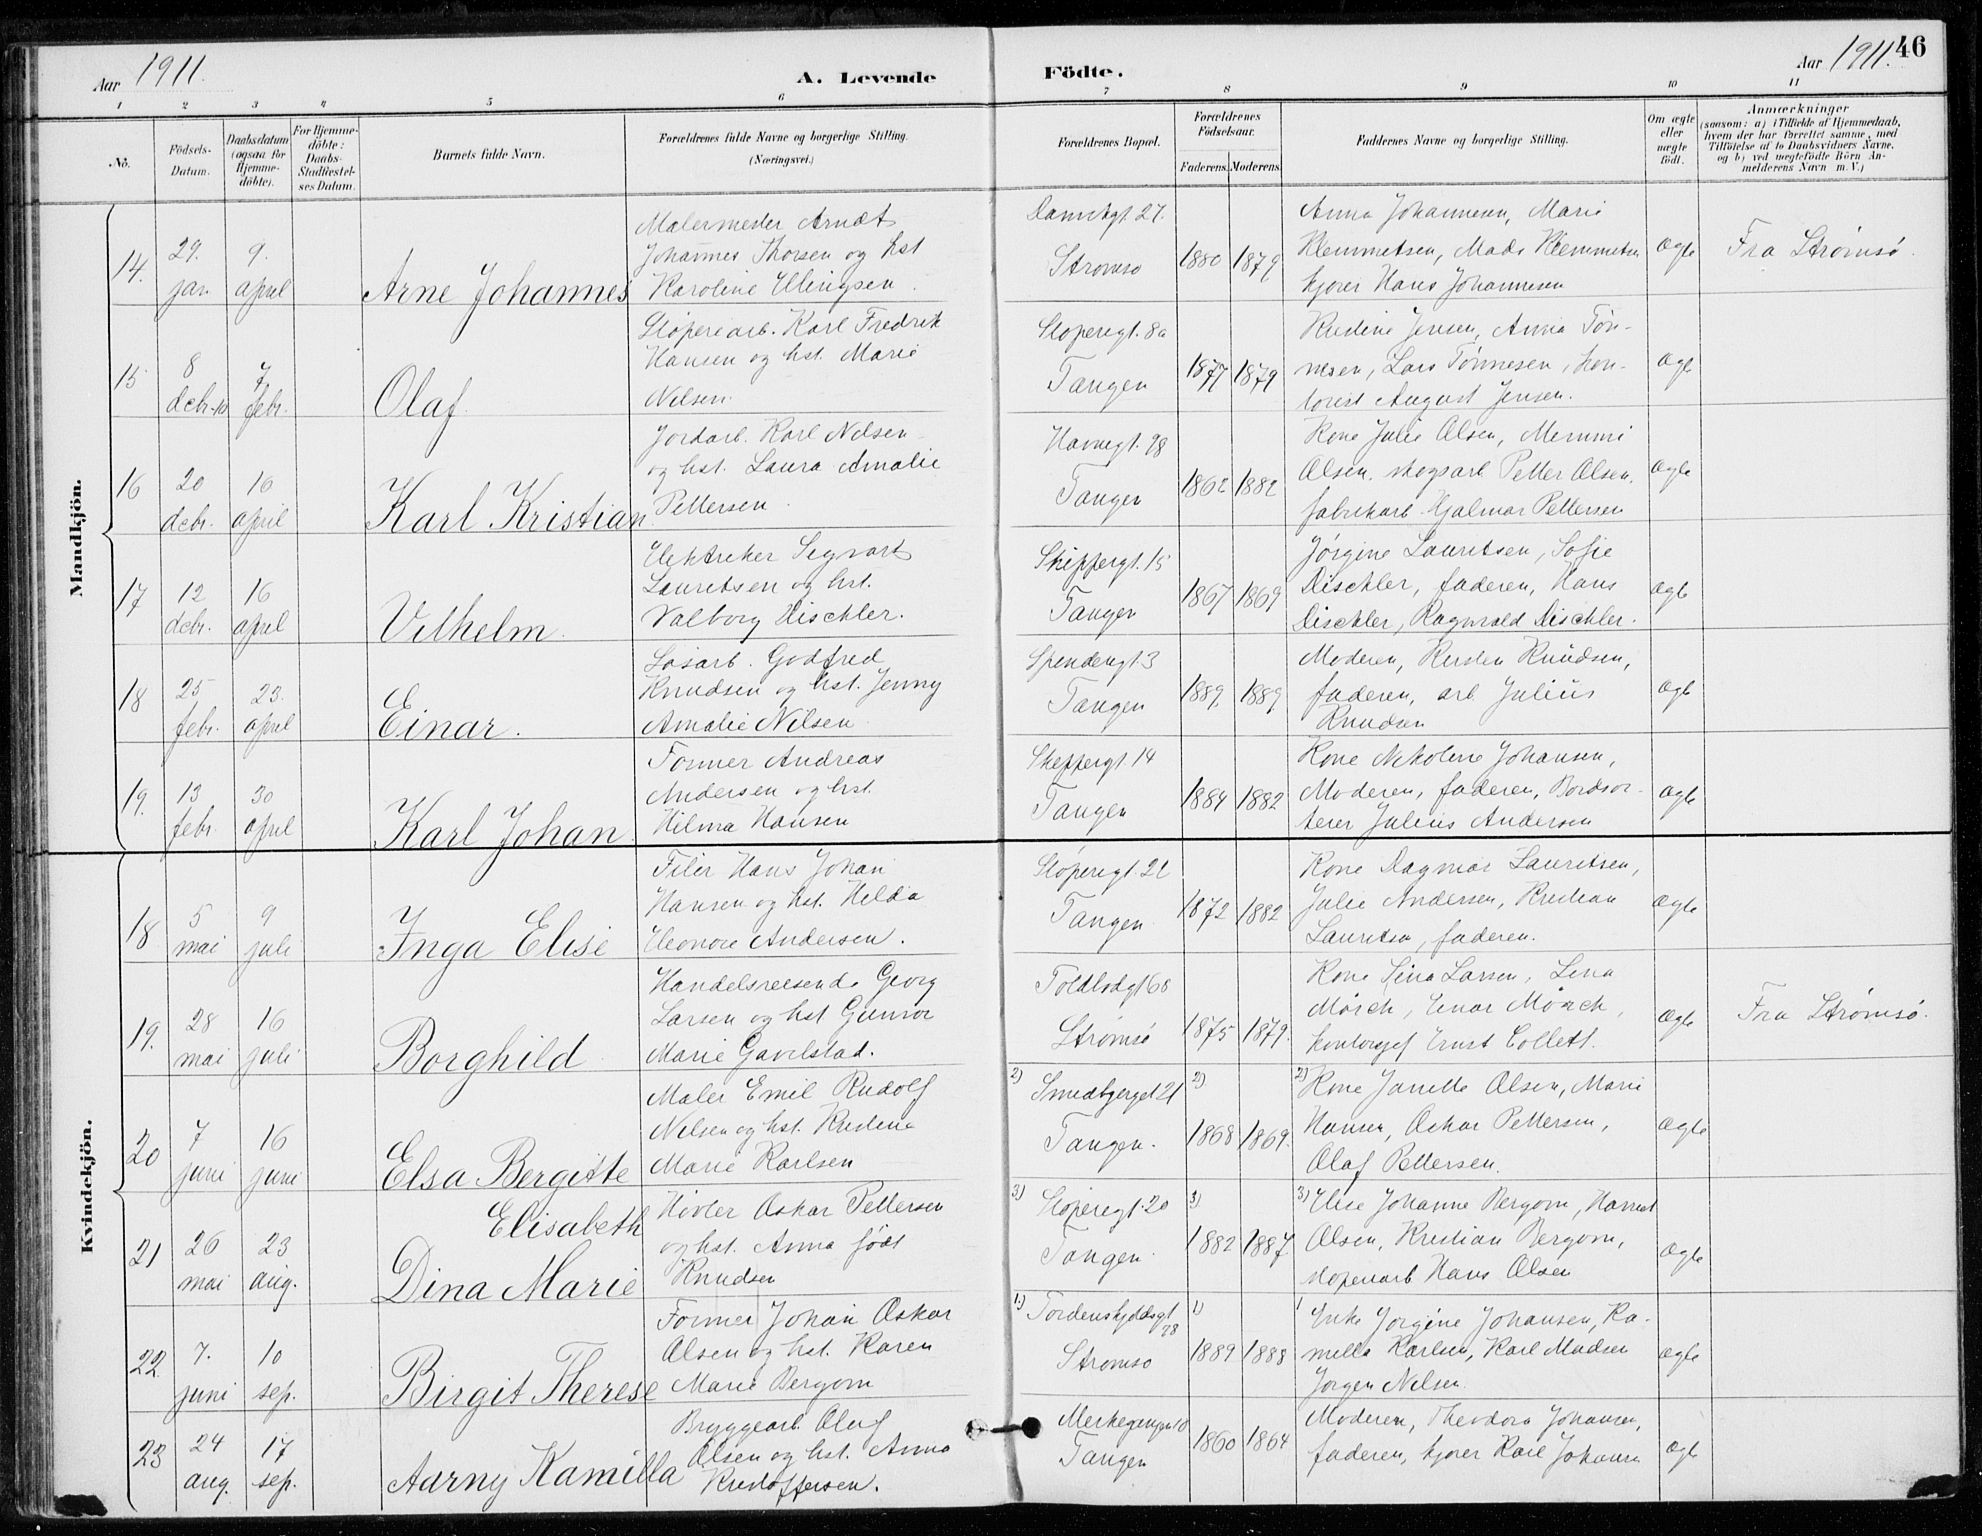 Aar 1911.
A. Levende
Födte.
Aar 1911.
46
1 2 3 4 5 6 7 8 9 10 11
No.
Födsels-
Datum.
Daabsdatum
(ogsaa for
Hjemme-
döbte).
For Hjemme-
döbte:
Daabs-
Stadfæstel-
ses Datum.
Barnets fulde Navn.
Forældrenes fulde Navne og borgerlige Stilling.
(Næringsvei.)
Forældrenes Bopæl.
Forældrenes
Födselsaar.
Faderens. Moderens.
Faddernes Navne og borgerlige Stilling.
Om ægte
eller
uægte
födt.
Anmærkninger
(saasom: a) i Tilfælde af Hjemmedaab,
hvem der har forrettet samme, med
Tilföielse af to Daabsvidners Navne,
og b) ved uægtefödte Börn An-
melderens Navn m. V.)
Mandkjön.
14.
29.
jan
9.
april
Arne Johannes
Malermester Arndt
Johannes Thorsen og hst
Karoline Ellingsen.
Danvikgt 27.
Strømsø
1880 1879
Anna Johannesen, Marie
Klemmetsen, Mads Klemmetsen
kjører Hans Johannesen
Ægte
Fra Strømsø.
15
8
debr. 10
7
febr.
Olaf
Støperiarb. Karl Fredrik
Hansen og hst. Marie
Nilsen.
Støperigt. 8a
Tangen
1877 1879
Kristine Jensen, Anna Tøn-
nesen, Lars Tønnesen, kon-
torist August Jensen.
Ægte
16
20
debr.
16
april
Karl Kristian
Jordarb. Karl Nilsen
og hst. Laura Amalie
Pettersen.
Havnegt. 98
Tangen
1862 1882
Kone Julie Olsen, Memmi
Olsen, skogsarb Petter Olsen,
fabrikarb. Hjalmar Pettersen
Ægte
17
12
debr.
16
april
Vilhelm
Elektriker Sigvart
Lauritsen og hst.
Valborg Dischler.
Skippergt. 15
Tangen
1867 1869
Jørgine Lauritsen, Sofie
Dischler, faderen, Hans
Dischler, Ragnvald Dischler.
Ægte
18
25
febr.
23.
april
Einar.
Løsarb. Godfred
Knudsen og hst. Jenny
Amalie Nilsen
Tangen
1889 1889
Moderen, Kirsten Knudsen,
faderen, arb Julius
Knudsen
Ægte
19.
13
febr.
30
april
Karl Johan
Former Andreas
Andersen og hst.
Hilma Hansen
Skippergt 14
Tangen
1884 1882
Kone Nikoline Johansen,
Moderen, faderen, Bordsor-
terer Julius Andersen
Ægte
Kvindekjön.
18
5
mai
9
juli
Inga Elise
Filer Hans Johan
Hansen og hst. Hilda
Eleonore Andersen.
Støperigt. 21
Tangen.
1872 1882
Kone Dagmar Lauritsen,
Julie Andersen, Kristian
Lauritsen, faderen.
Ægte
19.
28
mai
16
juli
Borghild
Handelsreisende Georg
Larsen og hst Gunvor
Marie Gavelstad.
Toldbodgt 68
Strømsø
1875 1879.
Kone Sina Larsen, Lina
Mörch, Einar Mörch,
kontorsjef Ernst Collett.
Ægte
Fra Strømsø.
20
7
juni
16
juni
Elsa Bergitte
Elisabeth
Maler Emil Rudolf
Nilsen og hst. Kristina
Marie Karlsen
2) Smedbjerget 21
Tangen.
2)
1868 1869.
2) Kone Janette Olsen, Marie
Hansen, Oskar Pettersen,
Olaf Pettersen.
Ægte
21
26
mai
23
aug.
Dina Marie
Høvler Oskar Pettersen
og hst. Anna født
Knudsen
3) Støperigt. 20
Tangen.
3)
1882 1887
3) Elise Johanne Bergom, Harriet
Olsen, Kristian Bergom,
støperiarb Hans Olsen
Ægte
22
7.
juni
10
sep.
Birgit Therese
Former Johan Oskar
Olsen og hst. Karen
Marie Bergom
1) Tordenskjoldsgt
28
Strømsø
1)
1889 1888
1 Enke Jørgine Johansen, Ka-
milla Karlsen, Karl Madsen
Jørgen Nilsen
Ægte
23
24
aug.
17
sep.
Aarny Kamilla
Bryggearb Oluf
Olsen og hst. Anna
Kristoffersen.
Tangen
1860 1864
Moderen, Theodora Johansen,
faderen, kjører Karl Johansen
Ægte